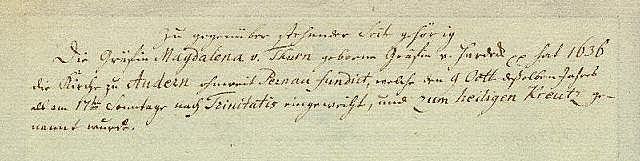 zu gegenüber stehender Seit gehörig
Die Gräfin Magdalena v. Thurn geborne Gräfin v. Hardeck xx hat 1636
die Kirche zu Audern ohnweit Pernau fundirt, welche den 9 Octb. desselben Jahres
als am 17ten Sonntage nach Trinitatis eingeweiht, und zum heiligen Kreutz ge-
nannt wurde.